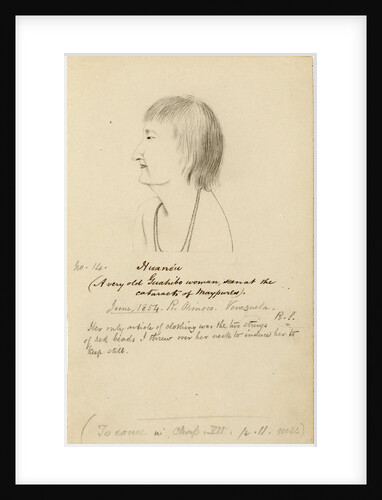 No. 14. Huanéu
(A very old Guahibo woman, seen at the
cataracts of Maypures).
June, 1854. R. Orinoco. Venezuela.
R.S.
Her only article of clothing was the two strings
of red beads I threw over her neck to induce her to
keep still.
(To come in Chap. VII. p. 11. MSS)